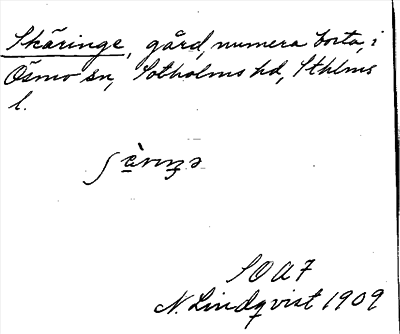 Skäringe, gård, numera borta, i
Ösmo sn, Sotholms hd, Sthlms
l.
SOAF
N. Lindqvist 1909